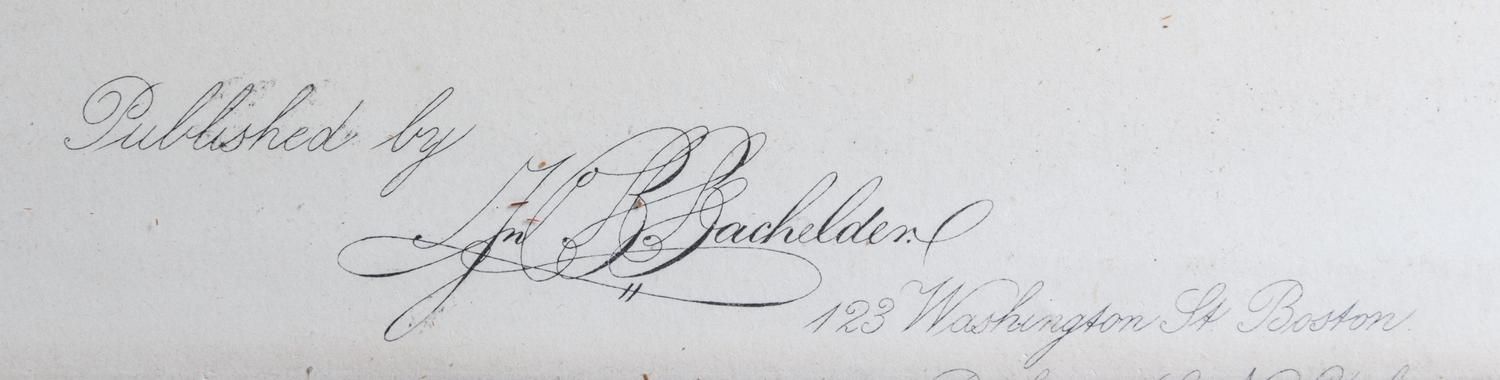 Published by
Jno B Bachelder
123 Washington St Boston